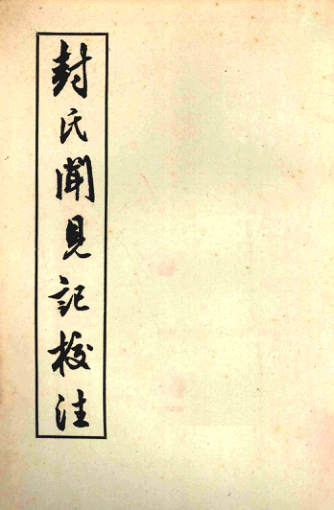 封氏聞見記校注